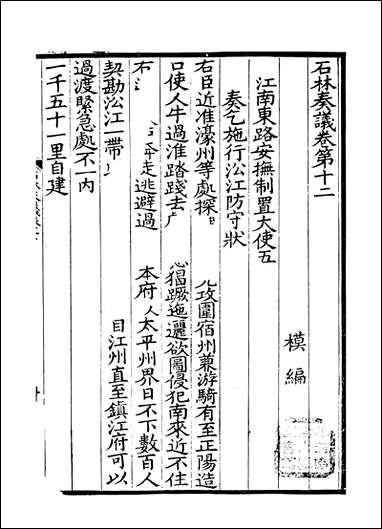 石林奏議卷第十二
模編
江南東路安撫制置大使五
奏乞施行㳂江防守狀
右臣近准濠州等處探 攻圍宿州兼游騎有至正陽造
口使人牛過淮踏踐去 猖蹶迤邐欲圖侵犯南來近不住
右 奔走逃避過 本府人太平州界日不下數百人
契勘㳂江一帶 江州直至鎮江府可以
過渡緊急處不一內
一千五十一里自建